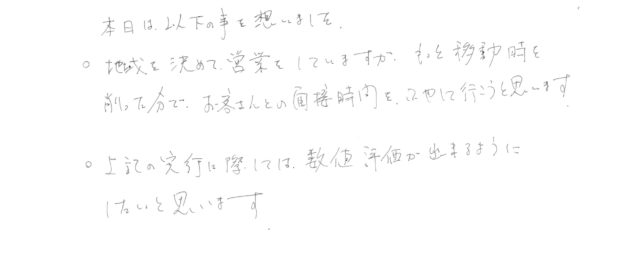 本日は、以下の事を想いました。
○ 地域を決めて、営業をしていますが、もっと移動時を
削った分で、お客さんとの面接時間を、ふやして行こうと思います
○ 上記の実行に際しては、数値評価が出来るように
したいと思います。